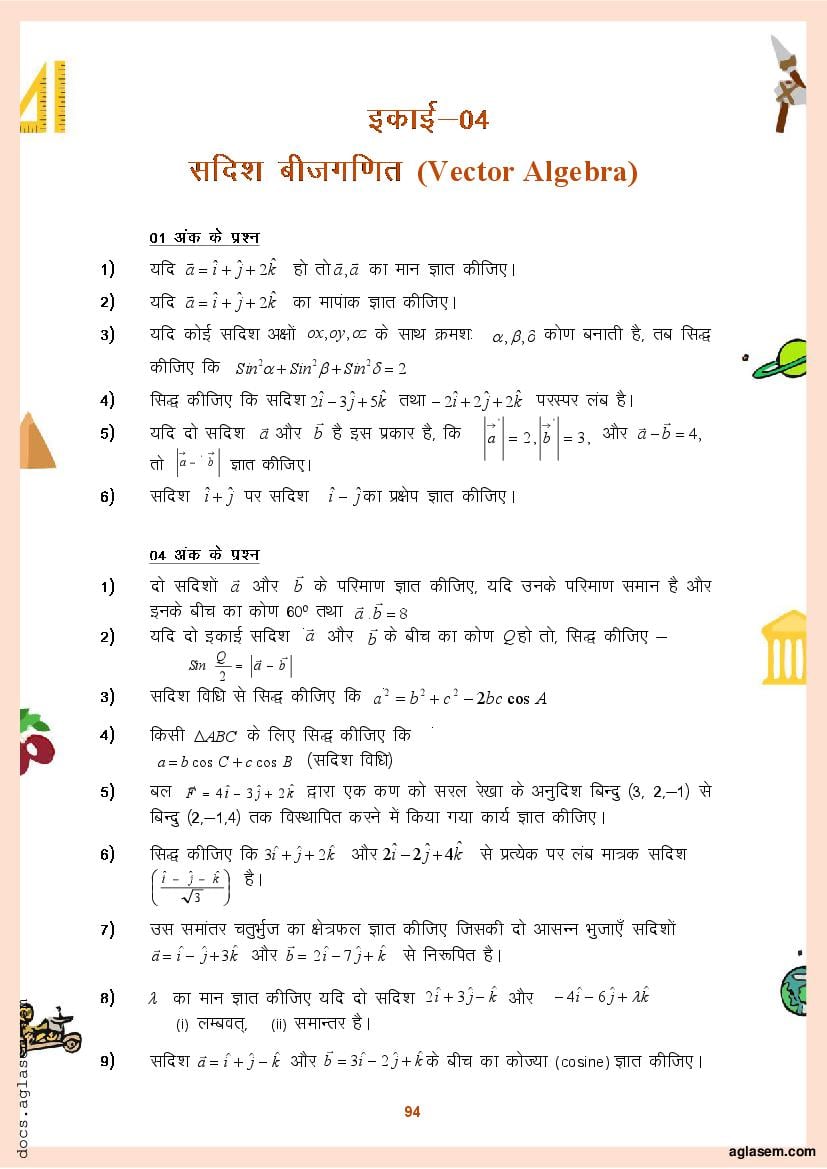 इकाई–04
सदिश बीजगणित (Vector Algebra)
01 अंक के प्रश्न
1) यदि a⃗ = î + ĵ + 2k̂ हो तो a⃗,a⃗ का मान ज्ञात कीजिए।
2) यदि a⃗ = î + ĵ + 2k̂ का मापांक ज्ञात कीजिए।
3) यदि कोई सदिश अक्षों ox,oy,oz के साथ क्रमशः α,β,δ कोण बनाती है, तब सिद्ध
कीजिए कि Sin²α + Sin²β + Sin²δ = 2
4) सिद्ध कीजिए कि सदिश 2î − 3ĵ + 5k̂ तथा − 2î + 2ĵ + 2k̂ परस्पर लंब है।
5) यदि दो सदिश a⃗ और b⃗ है इस प्रकार है, कि |a⃗| = 2, |b⃗| = 3, और a⃗ − b⃗ = 4,
तो |a⃗ − b⃗| ज्ञात कीजिए।
6) सदिश î + ĵ पर सदिश î − ĵ का प्रक्षेप ज्ञात कीजिए।
04 अंक के प्रश्न
1) दो सदिशों a⃗ और b⃗ के परिमाण ज्ञात कीजिए, यदि उनके परिमाण समान है और
इनके बीच का कोण 60⁰ तथा a⃗ .b⃗ = 8
2) यदि दो इकाई सदिश a⃗ और b⃗ के बीच का कोण Q हो तो, सिद्ध कीजिए –
Sin Q/2 = |a⃗ − b⃗|
3) सदिश विधि से सिद्ध कीजिए कि a² = b² + c² − 2bc cos A
4) किसी △ABC के लिए सिद्ध कीजिए कि
a = b cos C + c cos B (सदिश विधि)
5) बल F⃗ = 4î − 3ĵ + 2k̂ द्वारा एक कण को सरल रेखा के अनुदिश बिन्दु (3, 2,–1) से
बिन्दु (2,–1,4) तक विस्थापित करने में किया गया कार्य ज्ञात कीजिए।
6) सिद्ध कीजिए कि 3î + ĵ + 2k̂ और 2î − 2ĵ + 4k̂ से प्रत्येक पर लंब मात्रक सदिश
((î − ĵ − k̂)/√3) है।
7) उस समांतर चतुर्भुज का क्षेत्रफल ज्ञात कीजिए जिसकी दो आसन्न भुजाएँ सदिशों
a⃗ = î − ĵ + 3k̂ और b⃗ = 2î − 7ĵ + k̂ से निरूपित है।
8) λ का मान ज्ञात कीजिए यदि दो सदिश 2î + 3ĵ − k̂ और − 4î − 6ĵ + λk̂
(i) लम्बवत्, (ii) समान्तर है।
9) सदिश a⃗ = î + ĵ − k̂ और b⃗ = 3î − 2ĵ + k̂ के बीच का कोज्या (cosine) ज्ञात कीजिए।
94
aglasem.com